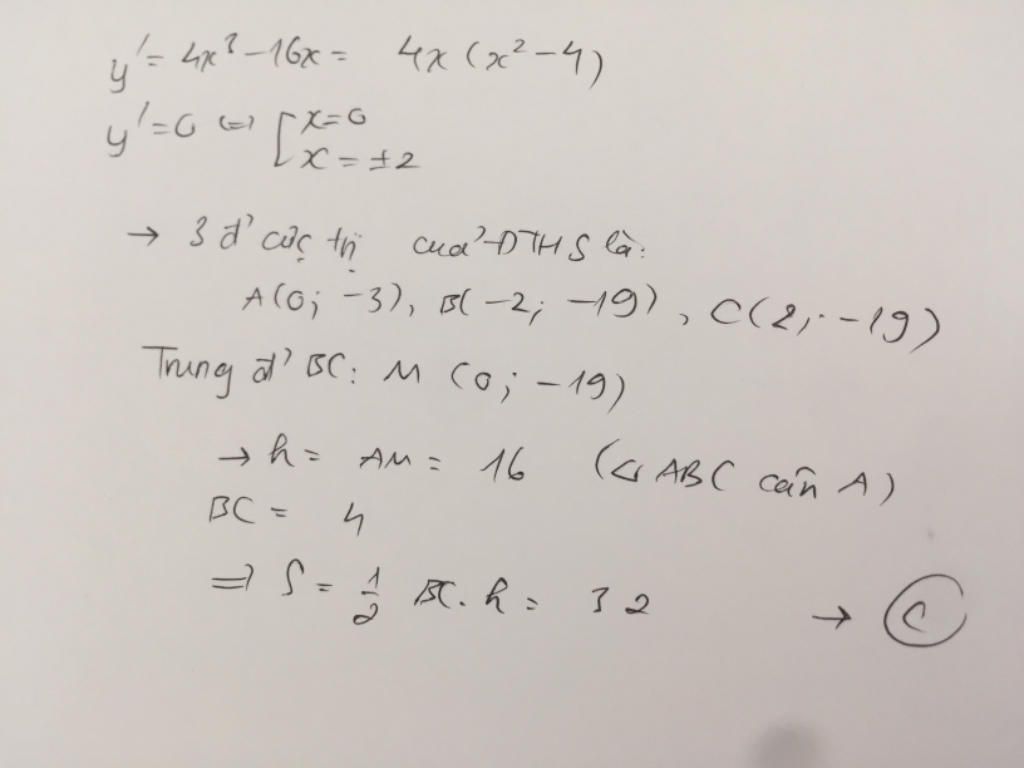 y' = 4x³ - 16x = 4x (x² - 4)
y' = 0 (=) [ x = 0
x = ±2
→ 3 đ' cực trị của ĐTHS là:
A(0; -3), B(-2; -19), C(2; -19)
Trung đ' BC: M (0; -19)
→ h = AM = 16 (△ ABC cân A)
BC = 4
=> S = 1/2 BC. h = 32 → C